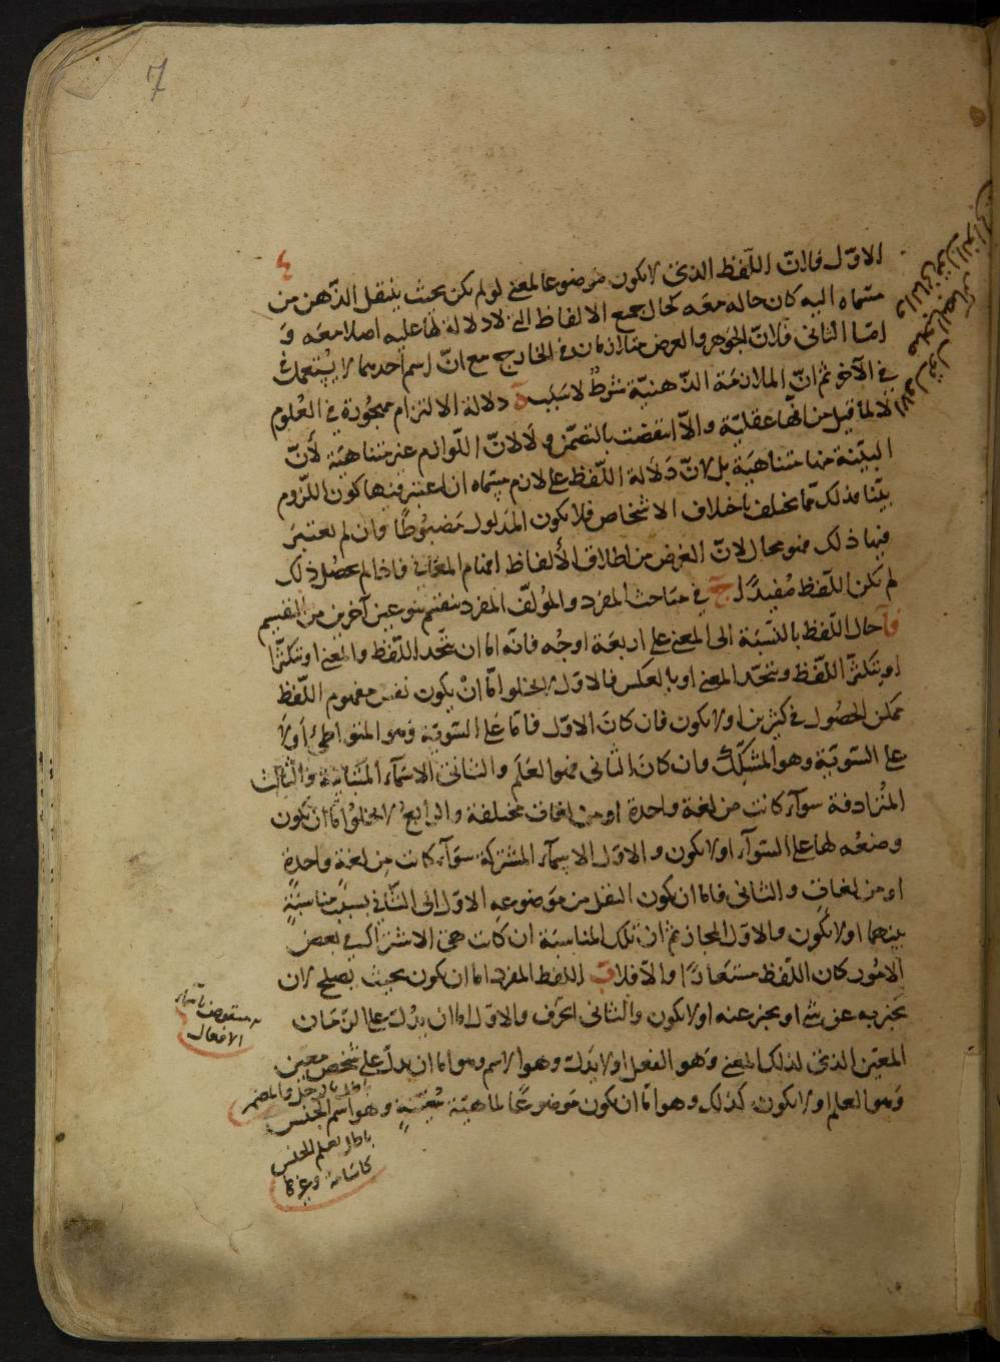 7
٤
الاوّل فلانّ اللّفظ الذى لا يكون موضوعا لمعنى لو لم يكن بحيث ينتقل الذّهن من
مسمّاه اليه كان حاله معه كحال جميع الالفاظ التى لا دلالة لها عليه اصلا معه و
امّا الثانى فلانّ الجوهر والعرض متلازمان فى الخارج مع انّ اسم احدهما لا يستعمل
فى الآخر ثم انّ الملازمة الذّهنيّة شرطٌ لا سبب ة دلالة الالتزام مهجورة فى العلوم
لا لما قيل من انّها عقليّة والّا انتقضت بالتضمّن ولا لانّ اللّوازم غير متناهية لأنّ
البيّنة منها متناهية بل لانّ دلالة اللّفظ على لازم مسمّاه ان اعتبر فيها كون اللزوم
بيّنا فذلك ممّا يختلف باختلاف الاشخاص فلا يكون المدلول مضبوطًا وان لم يعتبر
فيها ذلك فهو محال لانّ الغرض من اطلاق الألفاظ افهام المعانى فاذا لم يحصل ذلك
لم يكن اللّفظ مفيدًا ج فى مباحث المفرد والمؤلّف المفرد ينقسم بنوعين آخرين من التقسيم
فآ حال اللّفظ بالنّسبة الى المعنى على اربعة اوجُه فانّه امّا ان يتّحد اللّفظ والمعنى او يتكثّرا
او يتكثّر اللّفظ ويتّحد المعنى او بالعكس فالاوّل لا يخلو امّا انْ يكون نفس مفهوم اللّفظ
ممكن الحصُول فى كثيرين او لا يكون فان كان الاوّل فامّا على السّويّة وهو المتواطئ او لا
على السّويّة وهو المشكّك وان كان الثانى فهو العَلَم والثانى الاسمآء المتباينة والثالث
المترادفة سوآء كانت من لغة واحدة او من لغات مختلفة والرابع لا يخلو امّا ان يكون
وضعُه لها على السّوآء او لا يكون والاوّل الاسمآء المشتركة سوآء كانت من لغةٍ واحدةٍ
او من لغات والثانى فامّا ان يكون النقل من موضوعه الاوّل الى الثّانى بسبب مناسبةٍ
بينهما او لا يكون والاوّل المجاز ثم ان تلك المناسبة ان كانت هى الاشتراك فى بعض
الامُور كان اللّفظ مستعارًا والّا فلا ب اللفظ المفرد امّا ان يكون بحيث يصلح لان
يخبر به عن شئ او يخبر عنه او لا يكون والثانى الحرف والاوّل امّا ان يدلّ على الزمان
المعيّن الذى لذلك المعنى وهو الفعل او لا يدلّ وهو الاسم وهو امّا ان يدلّ على شخص معين
وهو العلم او لا يكون كذلك وهو امّا ان يكون موضوعًا لماهيّة معيّنةٍ وهو اسم الجنس
منقوض باسمآء
الافعال
باطل بعلم الجنس
كاسامة وغيرها